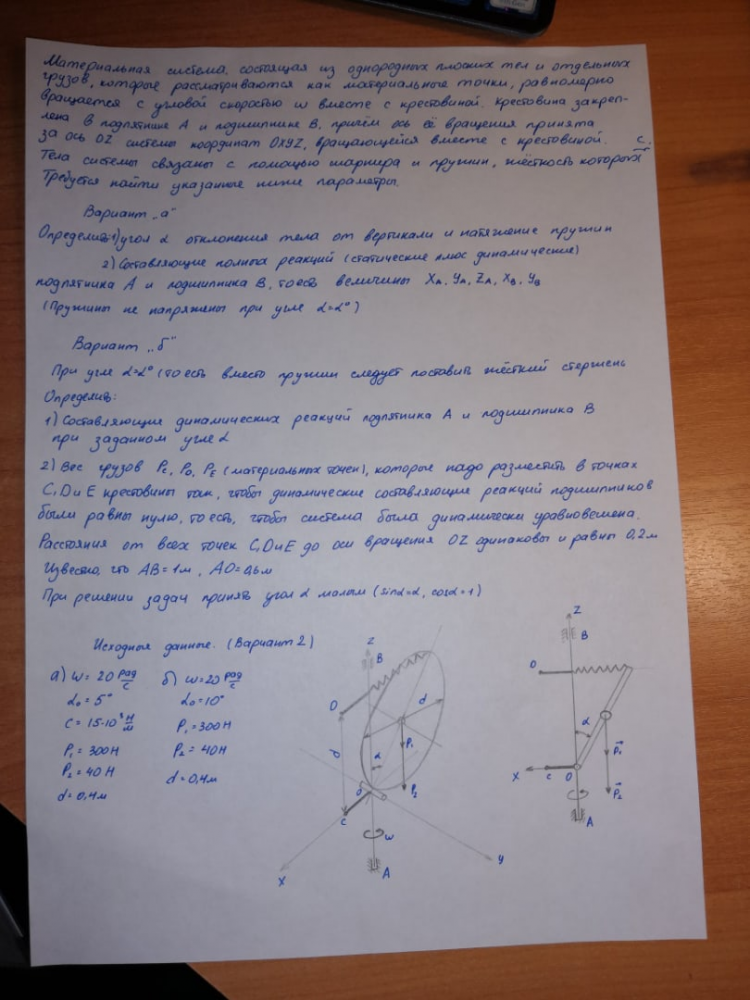 Материальная система, состоящая из однородных плоских тел и отдельных
грузов, которые рассматриваются как материальные точки, равномерно
вращается с угловой скоростью ω вместе с крестовиной. Крестовина закреп-
лена в подпятнике А и подшипнике В, причём ось её вращения принята
за ось OZ системы координат OXYZ, вращающейся вместе с крестовиной.
Тела системы связаны с помощью шарнира и пружин, жёсткость которых С.
Требуется найти указанные ниже параметры.
Вариант „а"
Определить: 1) угол α отклонения тела от вертикали и натяжение пружин
2) Составляющие полных реакций (статические плюс динамические)
подпятника А и подшипника В, то есть величины XA, YA, ZA, XB, YB
(Пружины не напряжены при угле α=α°)
Вариант „б"
При угле α=α° (то есть вместо пружин следует поставить жёсткий стержень
Определить:
1) Составляющие динамических реакций подпятника А и подшипника В
при заданном угле α
2) Вес грузов PC, PD, PE (материальных точек), которые надо разместить в точках
C, D и E крестовины так, чтобы динамические составляющие реакций подшипников
были равны нулю, то есть, чтобы система была динамически уравновешена.
Расстояния от всех точек C, D и E до оси вращения OZ одинаковы и равны 0,2м
Известно, что AB=1м, AO=0,6м
При решении задач принять угол α малым (sinα=α, cosα=1)
Исходные данные. (Вариант 2)
а) ω=20 рад/с б) ω=20 рад/с
α₀=5° α₀=10°
C=15·10³ Н/м P₁=300Н
P₁=300Н P₂=40Н
P₂=40Н d=0,4м
d=0,4м
Z
B
D
d
d
P₁
α
P₂
O
C
ω
X
Y
A
Z
B
D
α
P₁
X
C
O
P₂
A